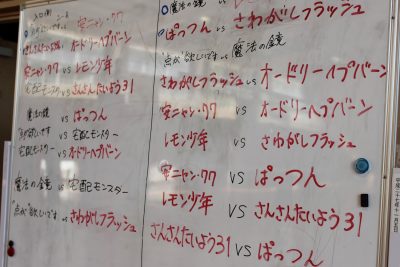 vs 安ニャン・97
さんさんたいよう31 vs オードリーヘプバーン
安ニャン・97 vs レモン少年
宅配モンスター vs さんさんたいよう31
魔法の鏡 vs ぱっつん
"点が"欲しいです vs 宅配モンスター
宅配モンスター vs オードリーヘプバーン
魔法の鏡 vs 宅配モンスター
"点が"欲しいです vs さわがしフラッシュ
魔法の鏡 vs さわがしフラッシュ
ぱっつん vs
"点が"欲しいです vs 魔法の鏡
さわがしフラッシュ vs オードリーヘプバーン
安ニャン・97 vs オードリーヘプバーン
レモン少年 vs さわがしフラッシュ
安ニャン・97 vs ぱっつん
レモン少年 vs さんさんたいよう31
さんさんたいよう31 vs ぱっつん
平成二十七年十一月五日